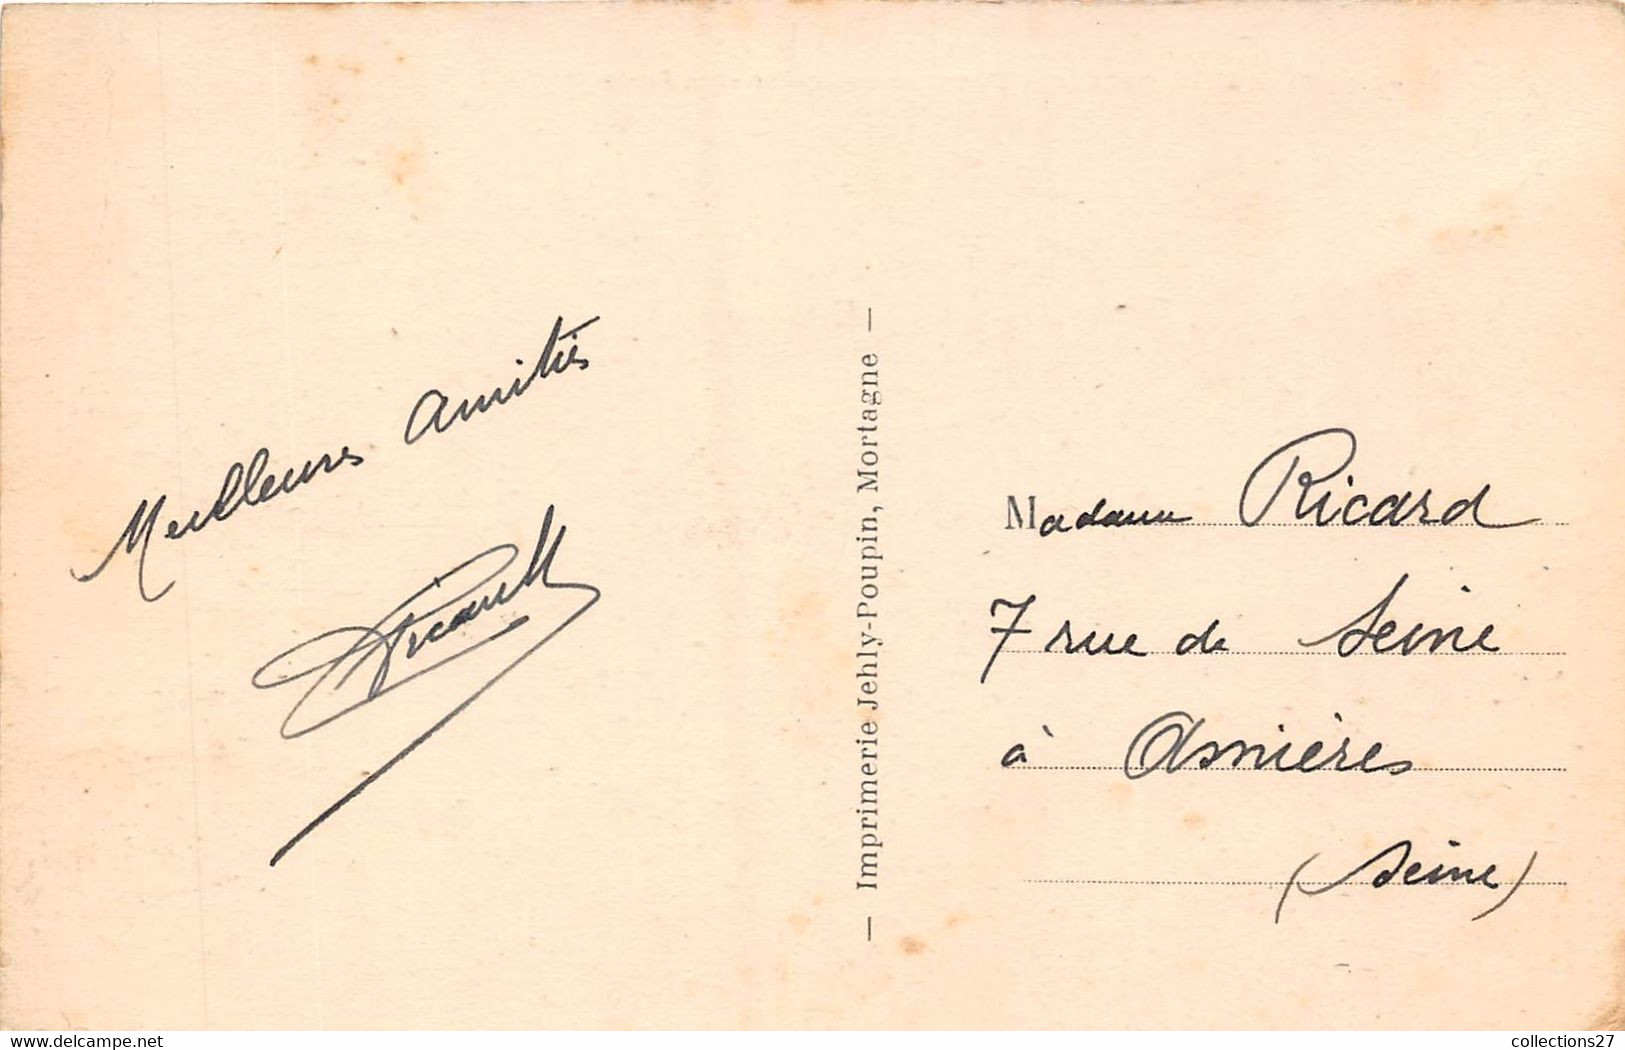 Meilleures Amitiés
— Imprimerie Jehly-Poupin, Mortagne —
Madame Ricard
7 rue de Seine
à Asnières
(Seine)
www.delcampe.net
collections27